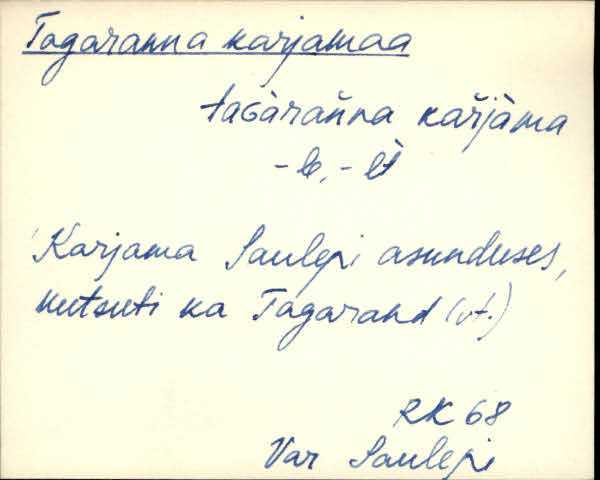 Tagaranna karjamaa
taGàrañna kařjàma
-le, -lt
Karjama Saulepi asunduses,
kutsuti ka Tagarand (vt.)
RK 68
Var Saulepi